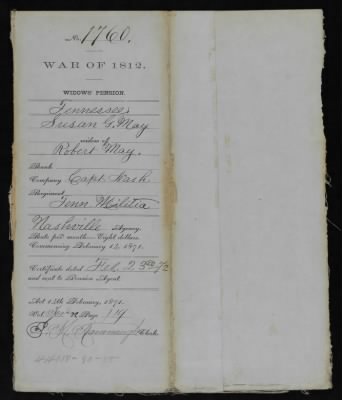 No. 1760.
WAR OF 1812.
WIDOWS' PENSION.
Tennessee.
Susan G. May
widow of
Robert May.
Rank
Company Capt. Nash
Regiment Tenn Militia
Nashville Agency.
Rate per month—Eight dollars
Commencing February 14, 1871.
Certificate dated Feb. 23rd 72
and sent to Pension Agent.
Act 14th February, 1871.
Vol. Page 14
Clerk.